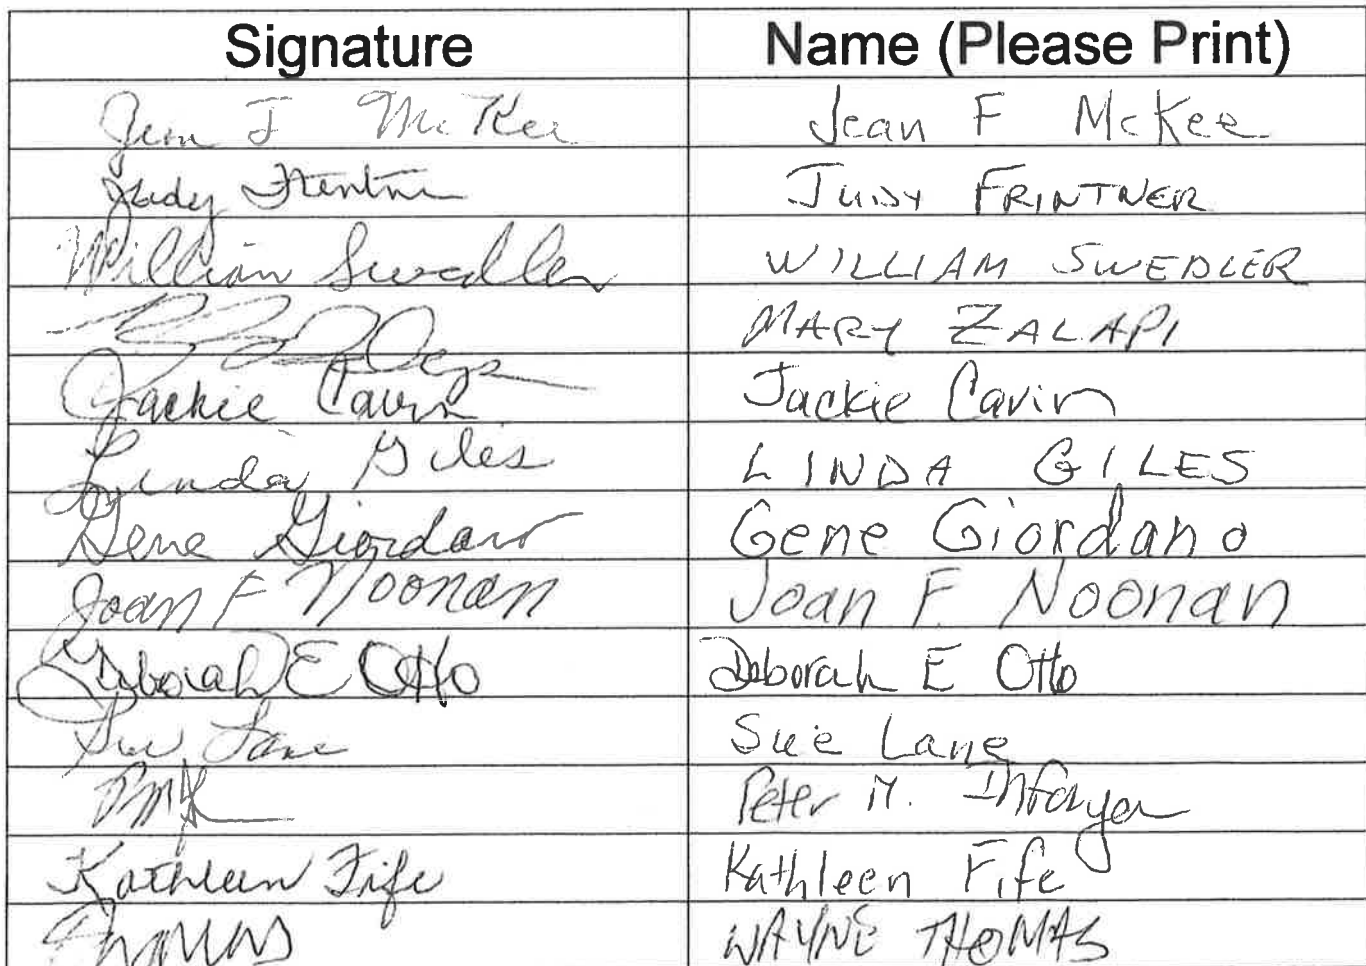 Signature Name (Please Print)
Jean F McKee Jean F McKee
Judy Frintner JUDY FRINTNER
William Swedler WILLIAM SWEDLER
MARY ZALAPI
Jackie Cavin Jackie Cavin
Linda Giles LINDA GILES
Gene Giordano Gene Giordano
Joan F Noonan Joan F. Noonan
Deborah E Otto Deborah E Otto
Sue Lane Sue Lane
Peter M.
Kathleen Fife Kathleen Fife
Thomas WAYNE THOMAS